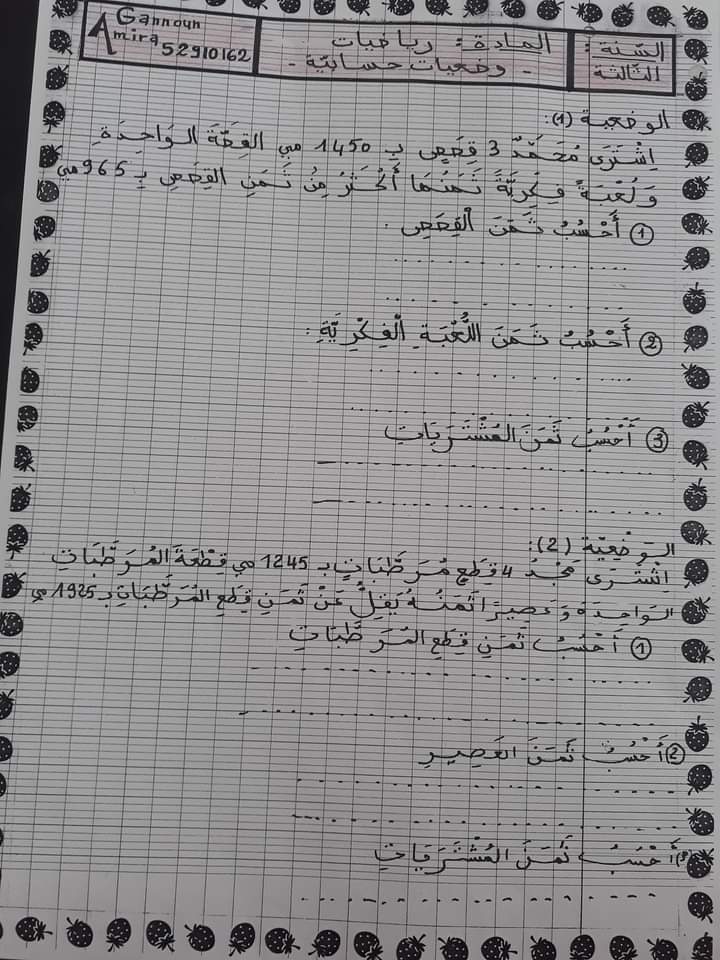 السّنة:
الثّالثة
المادة: رياضيات
- وضعيات حسابيّة -
Gannoun
Amira 52910162
الوضعية (1):
اِشْتَرَى مُحَمَّدٌ 3 قِصَصٍ بِـ 1450 مي القِصَّةَ الوَاحِدَةِ
وَلُعْبَةً فِكْرِيَّةً ثَمَنُهَا أَكْثَرُ مِنْ ثَمَنِ القِصَصِ بِـ 965 مي
① أَحْسُبُ ثَمَنَ الْقِصَصِ .
② أَحْسُبُ ثَمَنَ اللُّعْبَةِ الْفِكْرِيَّةِ :
③ أَحْسُبُ ثَمَنَ المُشْتَرَيَاتِ
الوَضْعِيّة (2):
اِشْتَرَى مَجْدُ 4 قِطَعِ مُرَطَّبَاتٍ بـ 1245 مي قِطْعَةَ المُرَطَّبَاتِ
الوَاحِدَة وَعَصِيرًا ثَمَنُهُ يَقِلُّ عَنْ ثَمَنِ قِطَعِ المُرَطَّبَاتِ بـ 1925 مي
① أَحْسُبُ ثَمَنِ قِطَعِ المُرَطَّبَاتِ
② أَحْسُبُ ثَمَنَ العَصِيرِ
③ أَحْسُبُ ثَمَنَ المُشْتَرَيَاتِ